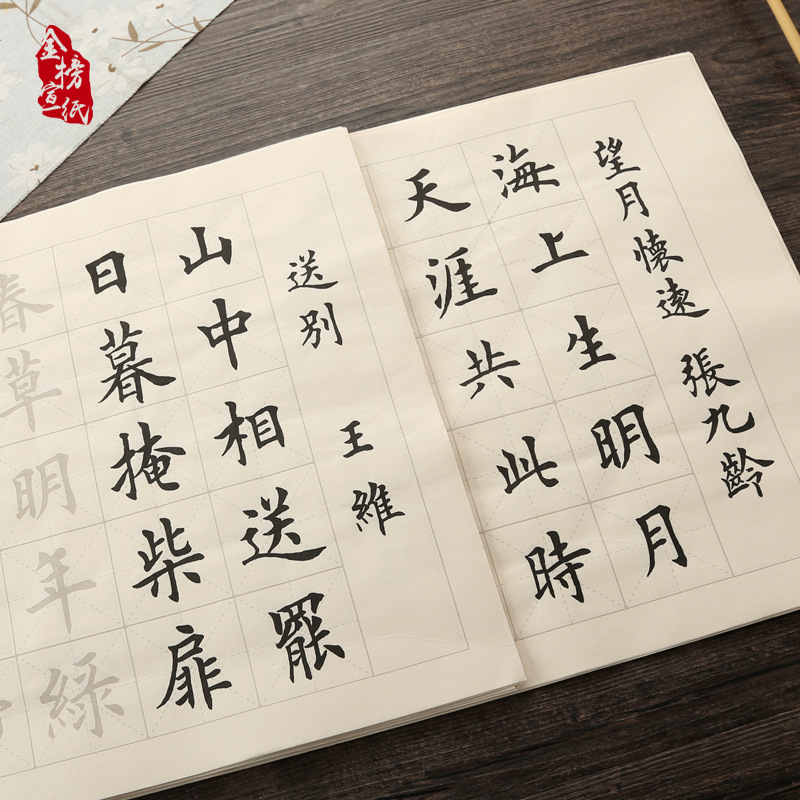 金榜
宣紙
望月懷遠 張九齡
海上生明月
天涯共此時
送別 王維
山中相送罷
日暮掩柴扉
春草明年綠